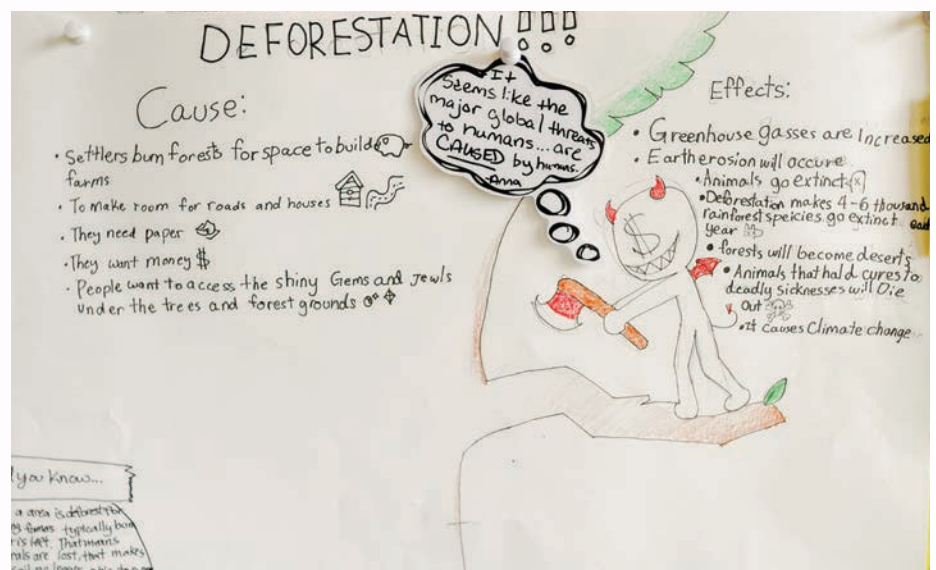 DEFORESTATION!!!
Cause:
• Settlers burn forests for space to build
farms
• To make room for roads and houses
• They need paper
• They want money $
• People want to access the shiny Gems and Jewls
under the trees and forest grounds
It
Seems like the
major global threats
to humans... are
CAUSED by humans.
-Anna
$
Effects:
• Greenhouse gasses are Increased
• Earth erosion will occure
• Animals go extinct
• Deforestation makes 4-6 thousand
rainforest speicies go extinct each
year
• forests will become deserts
• Animals that hald cures to
deadly sicknesses will Die
Out
• it causes Climate change
you know...
a area is deforest
typically burn
is left. That means
are lost, that makes